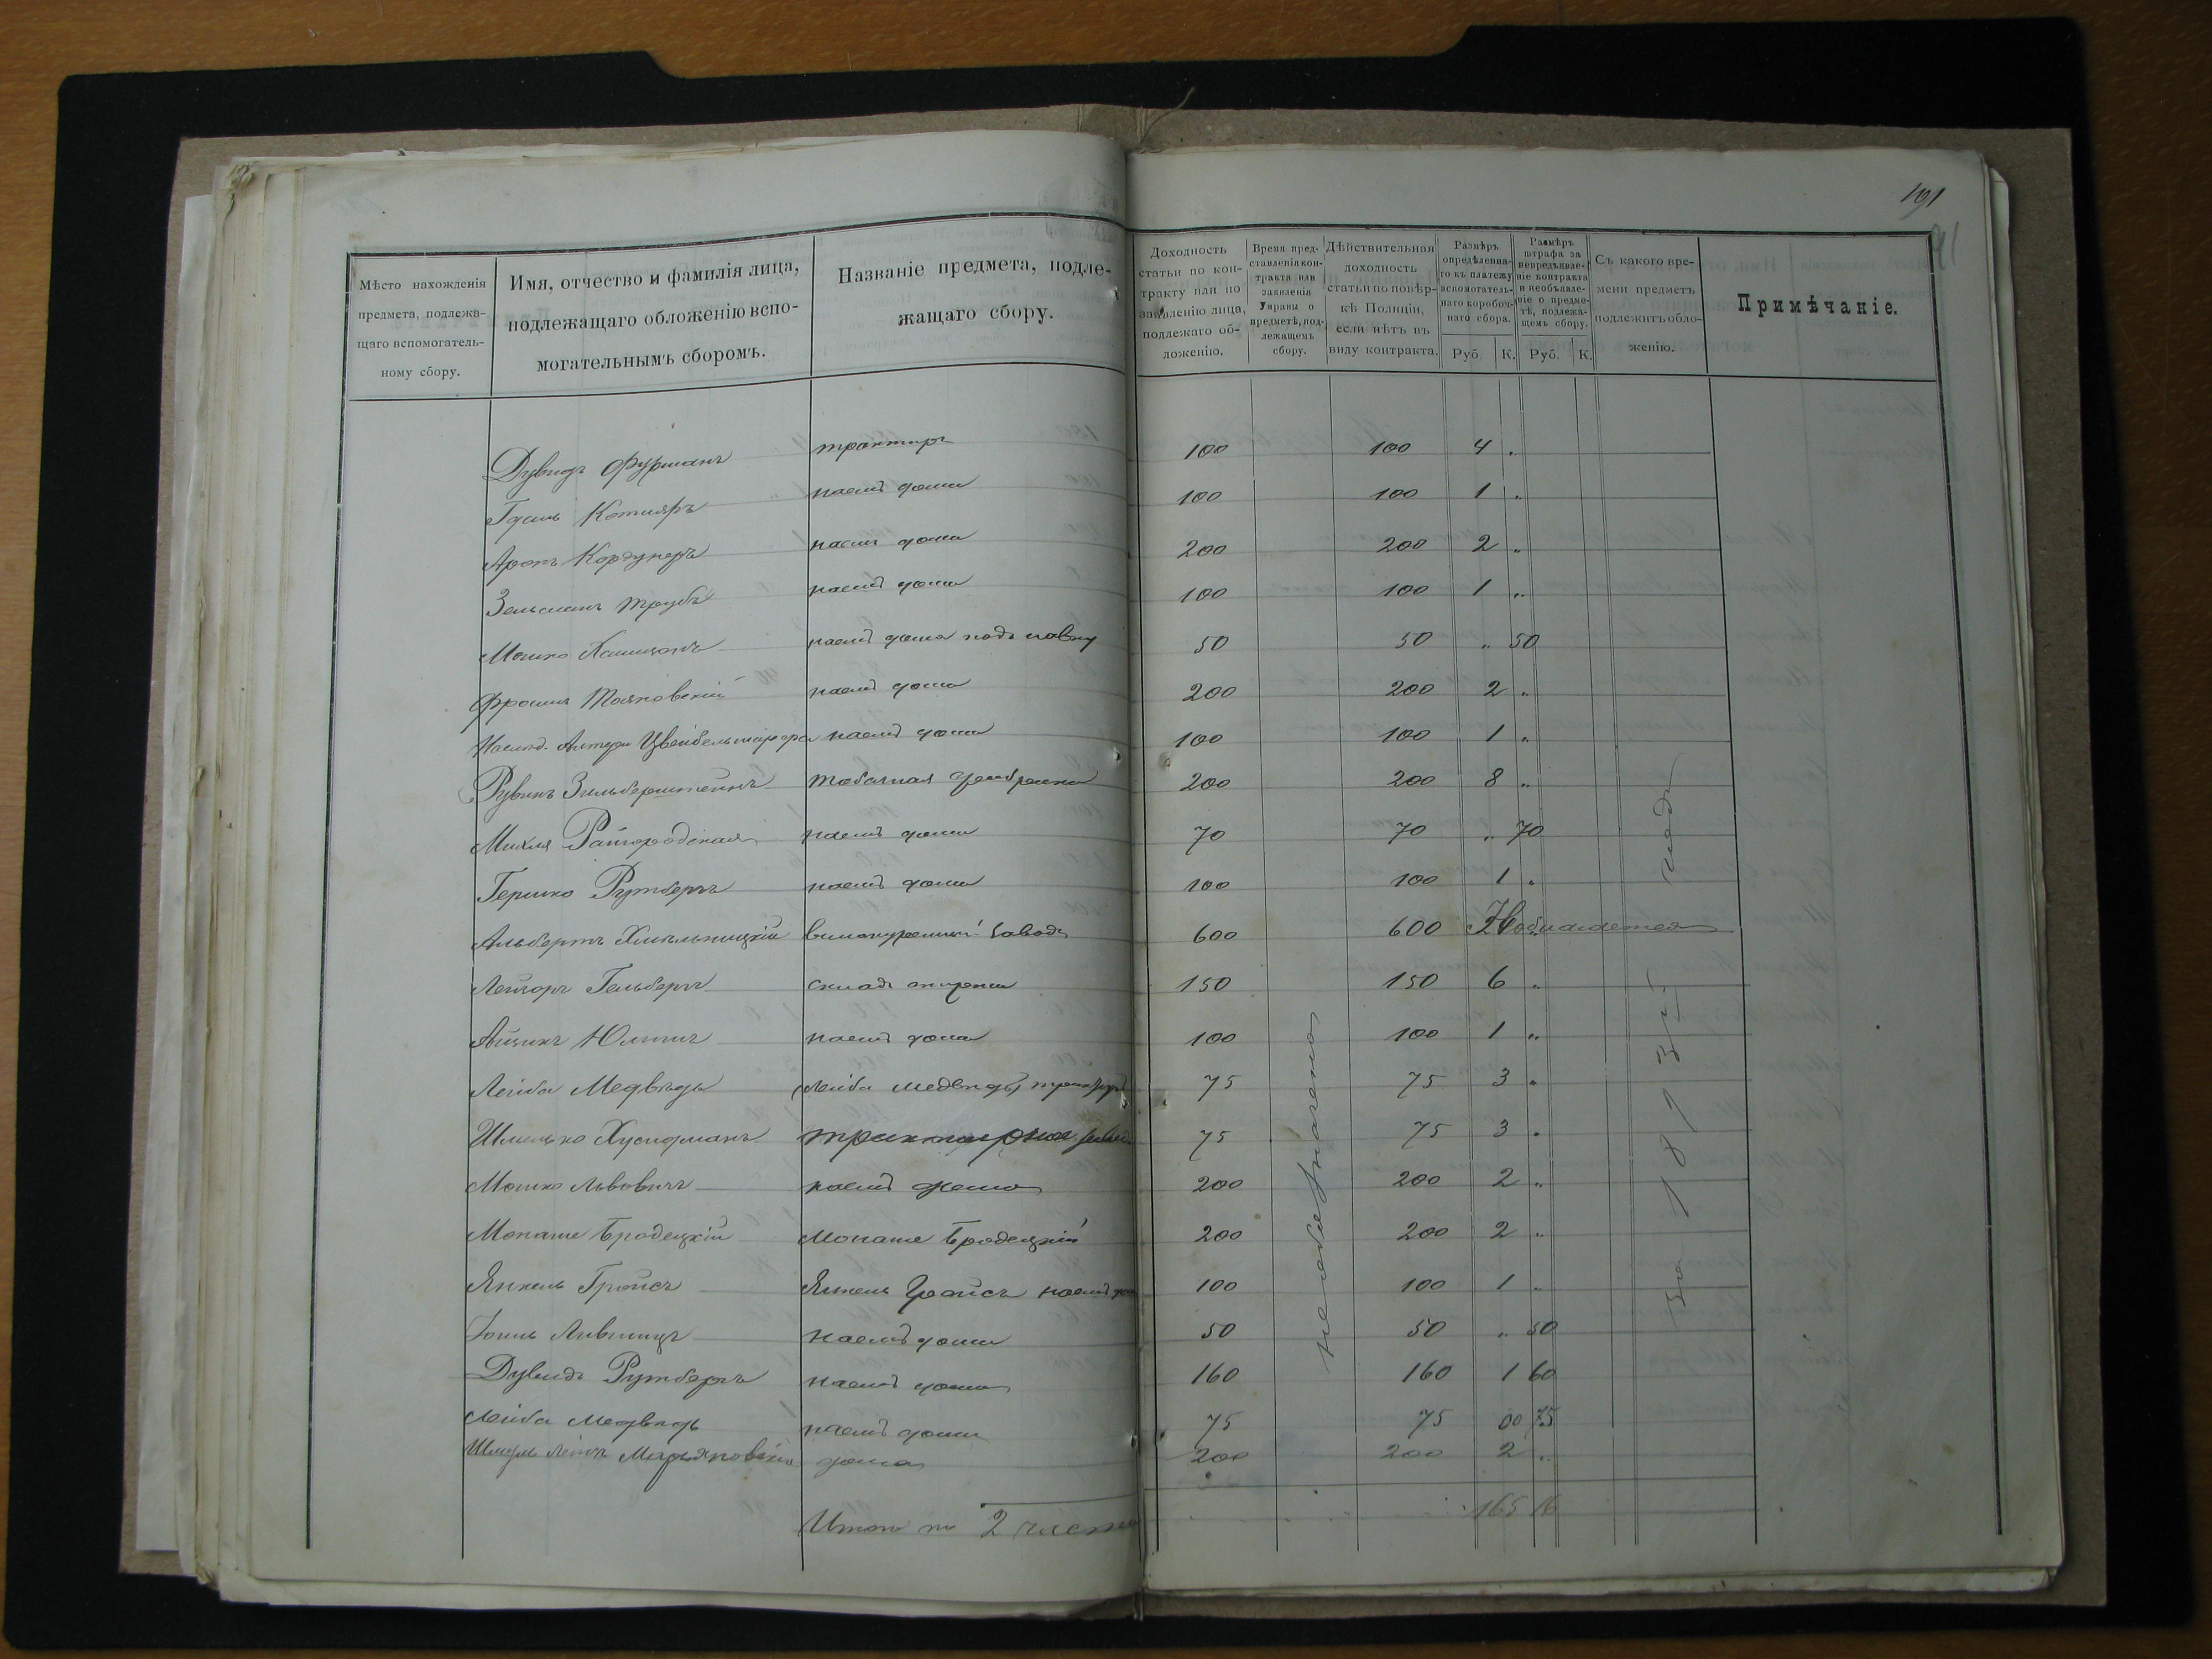 191
91
Мѣсто нахожденія предмета, подлежащаго вспомогательному сбору.
Имя, отчество и фамилія лица, подлежащаго обложенію вспомогательнымъ сборомъ.
Названіе предмета, подлежащаго сбору.
Доходность статьи по контракту или по заявленію лица, подлежаго обложенію.
Время представленія контракта или заявленія Управы о предметѣ, подлежащемъ сбору.
Дѣйствительная доходность статьи по повѣркѣ Полиціи, если нѣтъ въ виду контракта.
Размѣръ опредѣленнаго къ платежу вспомогательнаго коробочнаго сбора.
Руб. К.
Размѣръ штрафа за непредъявленіе контракта и необъявленіе о предметѣ, подлежащемъ сбору.
Руб. К.
Съ какого времени предметъ подлежитъ обложенію.
Примѣчаніе.
Дувидъ Фурманъ трактиръ 100 100 4 "
Котляръ наемъ дома 100 100 1 "
Аронъ Кордунеръ наемъ дома 200 200 2 "
Зельманъ Трубъ наемъ дома 100 100 1 "
Мошко наемъ дома подъ лавку 50 50 " 50
Фроимъ наемъ дома 200 200 2 "
Наслѣд. наемъ дома 100 100 1 "
Рувинъ Зильберштейнъ табачная фабрика 200 200 8 "
Михля Райгородская наемъ дома 70 70 " 70
Гершко Рутбергъ наемъ дома 100 100 1 "
Альбертъ Хмѣльницкій винокуренный заводъ 600 600
Лейзоръ Гельбергъ складъ 150 150 6 "
Айзикъ наемъ дома 100 100 1 "
Лейба Медвѣдь (Лейба Медвѣдь) 75 75 3 "
Шлиомко Хусидманъ трактирное 75 75 3 "
Мошко Львовичъ наемъ дома 200 200 2 "
Монаше Бродецкій Монаше Бродецкій 200 200 2 "
Янкель Гройсъ Янкель Гройсъ наемъ 100 100 1 "
Лившицъ наемъ дома 50 50 " 50
Дувидъ Рутбергъ наемъ дома 160 160 1 60
Лейба Медвѣдь наемъ дома 75 75 00 75
Шмуль дома 200 200 2 "
Итого по 2 части 165 16
За 187 годъ